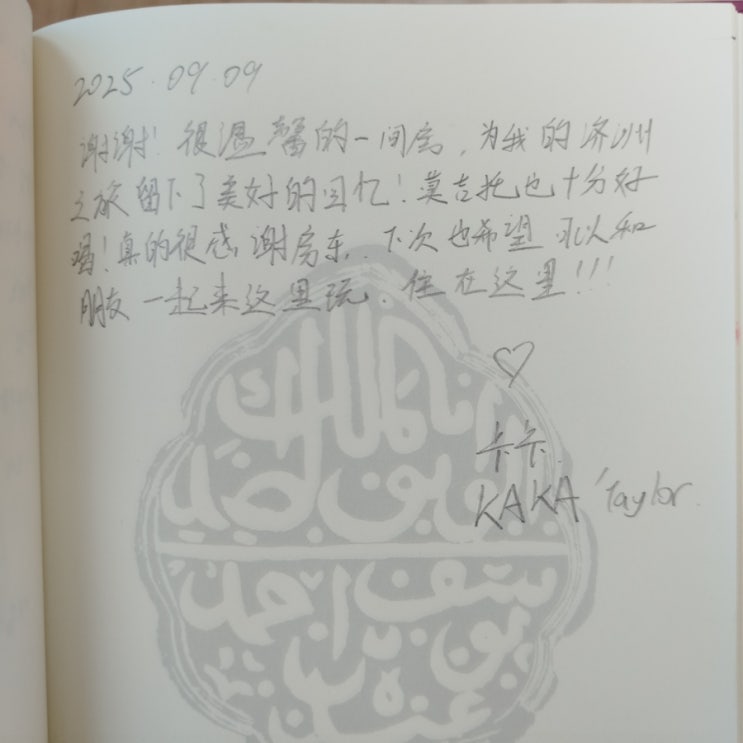 2025.09.09
谢谢! 很温馨的一间房,为我的济州
之旅留下了美好的回忆!莫吉托也十分好
喝!真的很感谢房东.下次也希望可以和
朋友一起来这里玩.住在这里!!!
♡
卡卡.
KAKA Taylor.